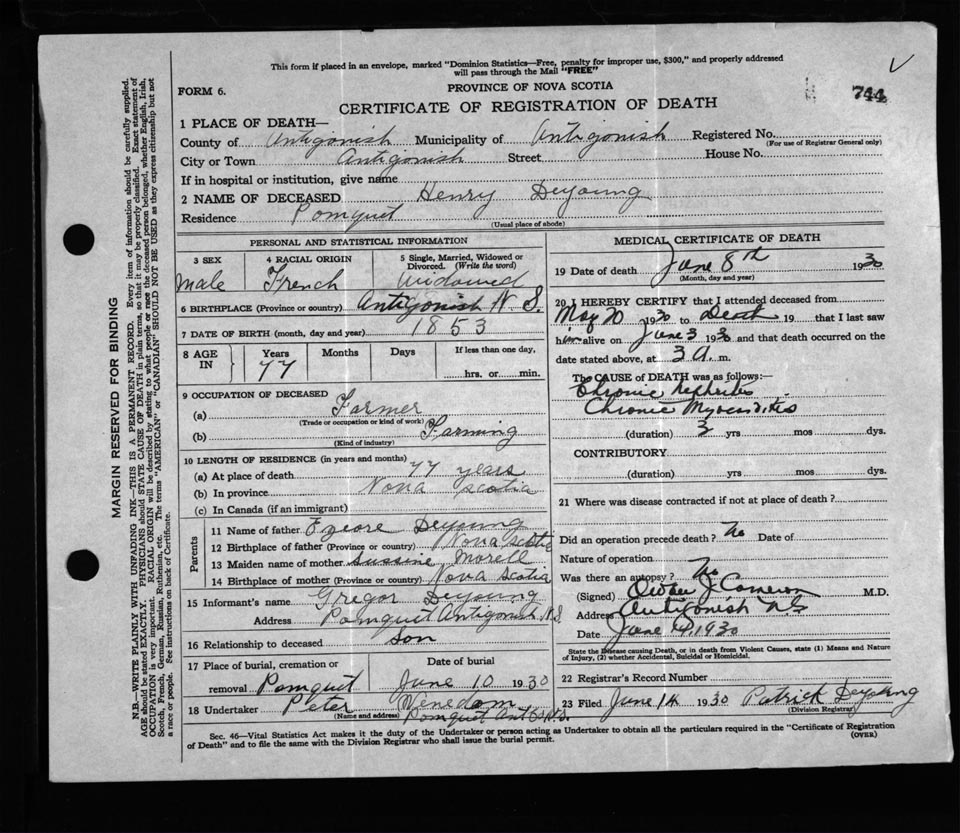 This form if placed in an envelope, marked "Dominion Statistics—Free, penalty for improper use, $300," and properly addressed
will pass through the Mail "FREE"
FORM 6.
PROVINCE OF NOVA SCOTIA
744
CERTIFICATE OF REGISTRATION OF DEATH
1 PLACE OF DEATH—
County of Antigonish Municipality of Antigonish Registered No.
(For use of Registrar General only)
City or Town Antigonish Street House No.
If in hospital or institution, give name
2 NAME OF DECEASED Henry Deyoung
Residence Pomquet
(Usual place of abode)
PERSONAL AND STATISTICAL INFORMATION
3 SEX 4 RACIAL ORIGIN 5 Single, Married, Widowed or Divorced. (Write the word)
male French Widowed
6 BIRTHPLACE (Province or country) Antigonish N. S.
7 DATE OF BIRTH (month, day and year) 1853
8 AGE IN Years Months Days If less than one day,
77 hrs. or min.
9 OCCUPATION OF DECEASED
(a) Farmer
(Trade or occupation or kind of work)
(b) Farming
(Kind of industry)
10 LENGTH OF RESIDENCE (in years and months)
(a) At place of death 77 years
(b) In province Nova Scotia
(c) In Canada (if an immigrant)
Parents
11 Name of father Deyoung
12 Birthplace of father (Province or country) Nova Scotia
13 Maiden name of mother Morell
14 Birthplace of mother (Province or country) Nova Scotia
15 Informant's name Gregor Deyoung
Address Pomquet Antigonish N.S
16 Relationship to deceased son
17 Place of burial, cremation or Date of burial
removal Pomquet June 10 1930
18 Undertaker Peter
(Name and address) Pomquet Ant. N.S.
MEDICAL CERTIFICATE OF DEATH
19 Date of death June 8th 1930
(Month, day and year)
20 I HEREBY CERTIFY that I attended deceased from
May 20 1930 to Death 19 that I last saw
him alive on June 3 1930 and that death occurred on the
date stated above, at 3 A. m.
The CAUSE of DEATH was as follows:—
Chronic Nephritis
Chronic Myocarditis
(duration) 3 yrs mos dys.
CONTRIBUTORY
(duration) yrs mos dys.
21 Where was disease contracted if not at place of death?
Did an operation precede death? No Date of
Nature of operation
Was there an autopsy? No
(Signed) J Cameron M.D.
Address Antigonish NS
Date June 14, 1930
State the Disease causing Death, or in death from Violent Causes, state (1) Means and Nature
of Injury, (2) whether Accidental, Suicidal or Homicidal.
22 Registrar's Record Number
23 Filed June 14 1930 Patrick Deyoung
(Division Registrar)
Sec. 46—Vital Statistics Act makes it the duty of the Undertaker or person acting as Undertaker to obtain all the particulars required in the "Certificate of Registration
of Death" and to file the same with the Division Registrar who shall issue the burial permit.
(OVER)
MARGIN RESERVED FOR BINDING
N.B.—WRITE PLAINLY WITH UNFADING INK—THIS IS A PERMANENT RECORD. Every item of information should be carefully supplied.
AGE should be stated EXACTLY. PHYSICIANS should STATE CAUSE OF DEATH in plain terms, so that it may be properly classified. Exact statement of
OCCUPATION is very important. RACIAL ORIGIN will be described by stating to what people or race the deceased person belonged, whether English, Irish,
Scotch, French, German, Russian, Ruthenian, etc. The terms "AMERICAN" or "CANADIAN" SHOULD NOT BE USED as they express citizenship but not
a race or people. See instructions on back of Certificate.